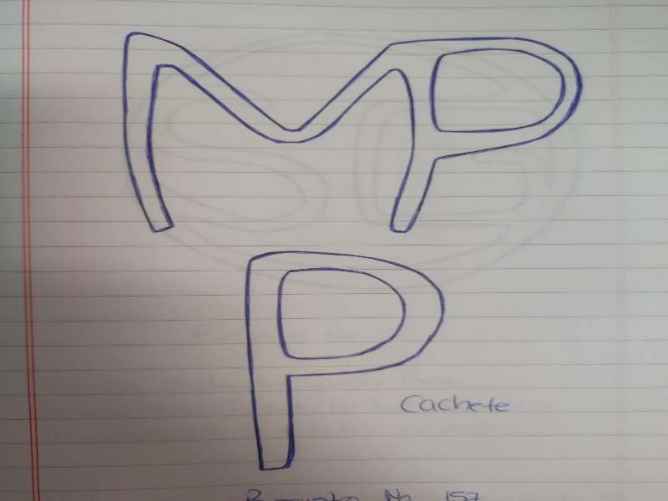 MP
P
Cachete
No 157